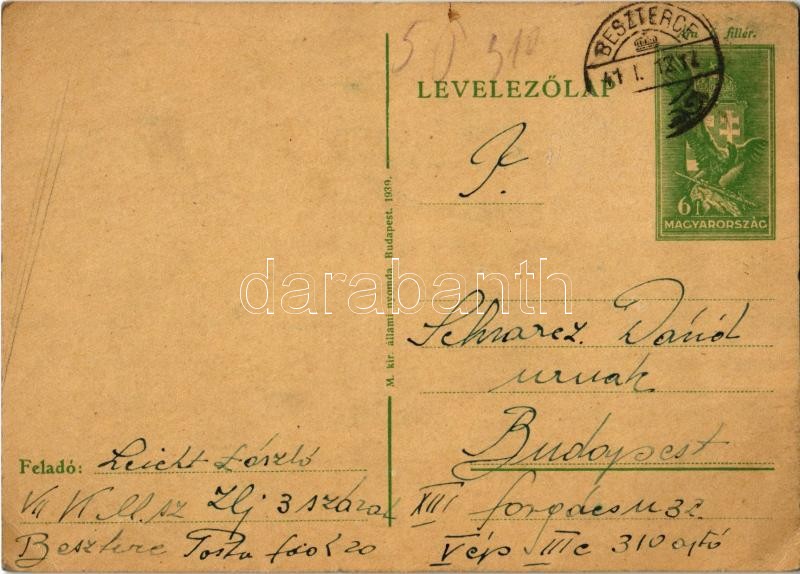 5 310
BESZTERCE
41 I. 12
Ára fillér.
LEVELEZŐLAP
6 f
MAGYARORSZÁG
M. kir. állami nyomda, Budapest. 1939.
darabanth
T.
Schvarcz. Dávid
urnak
Budapest
XIII forgács u 32.
III e 310 ajtó
Feladó: Leicht László
VII M. sz 3 század
Beszterce Posta fiók 20